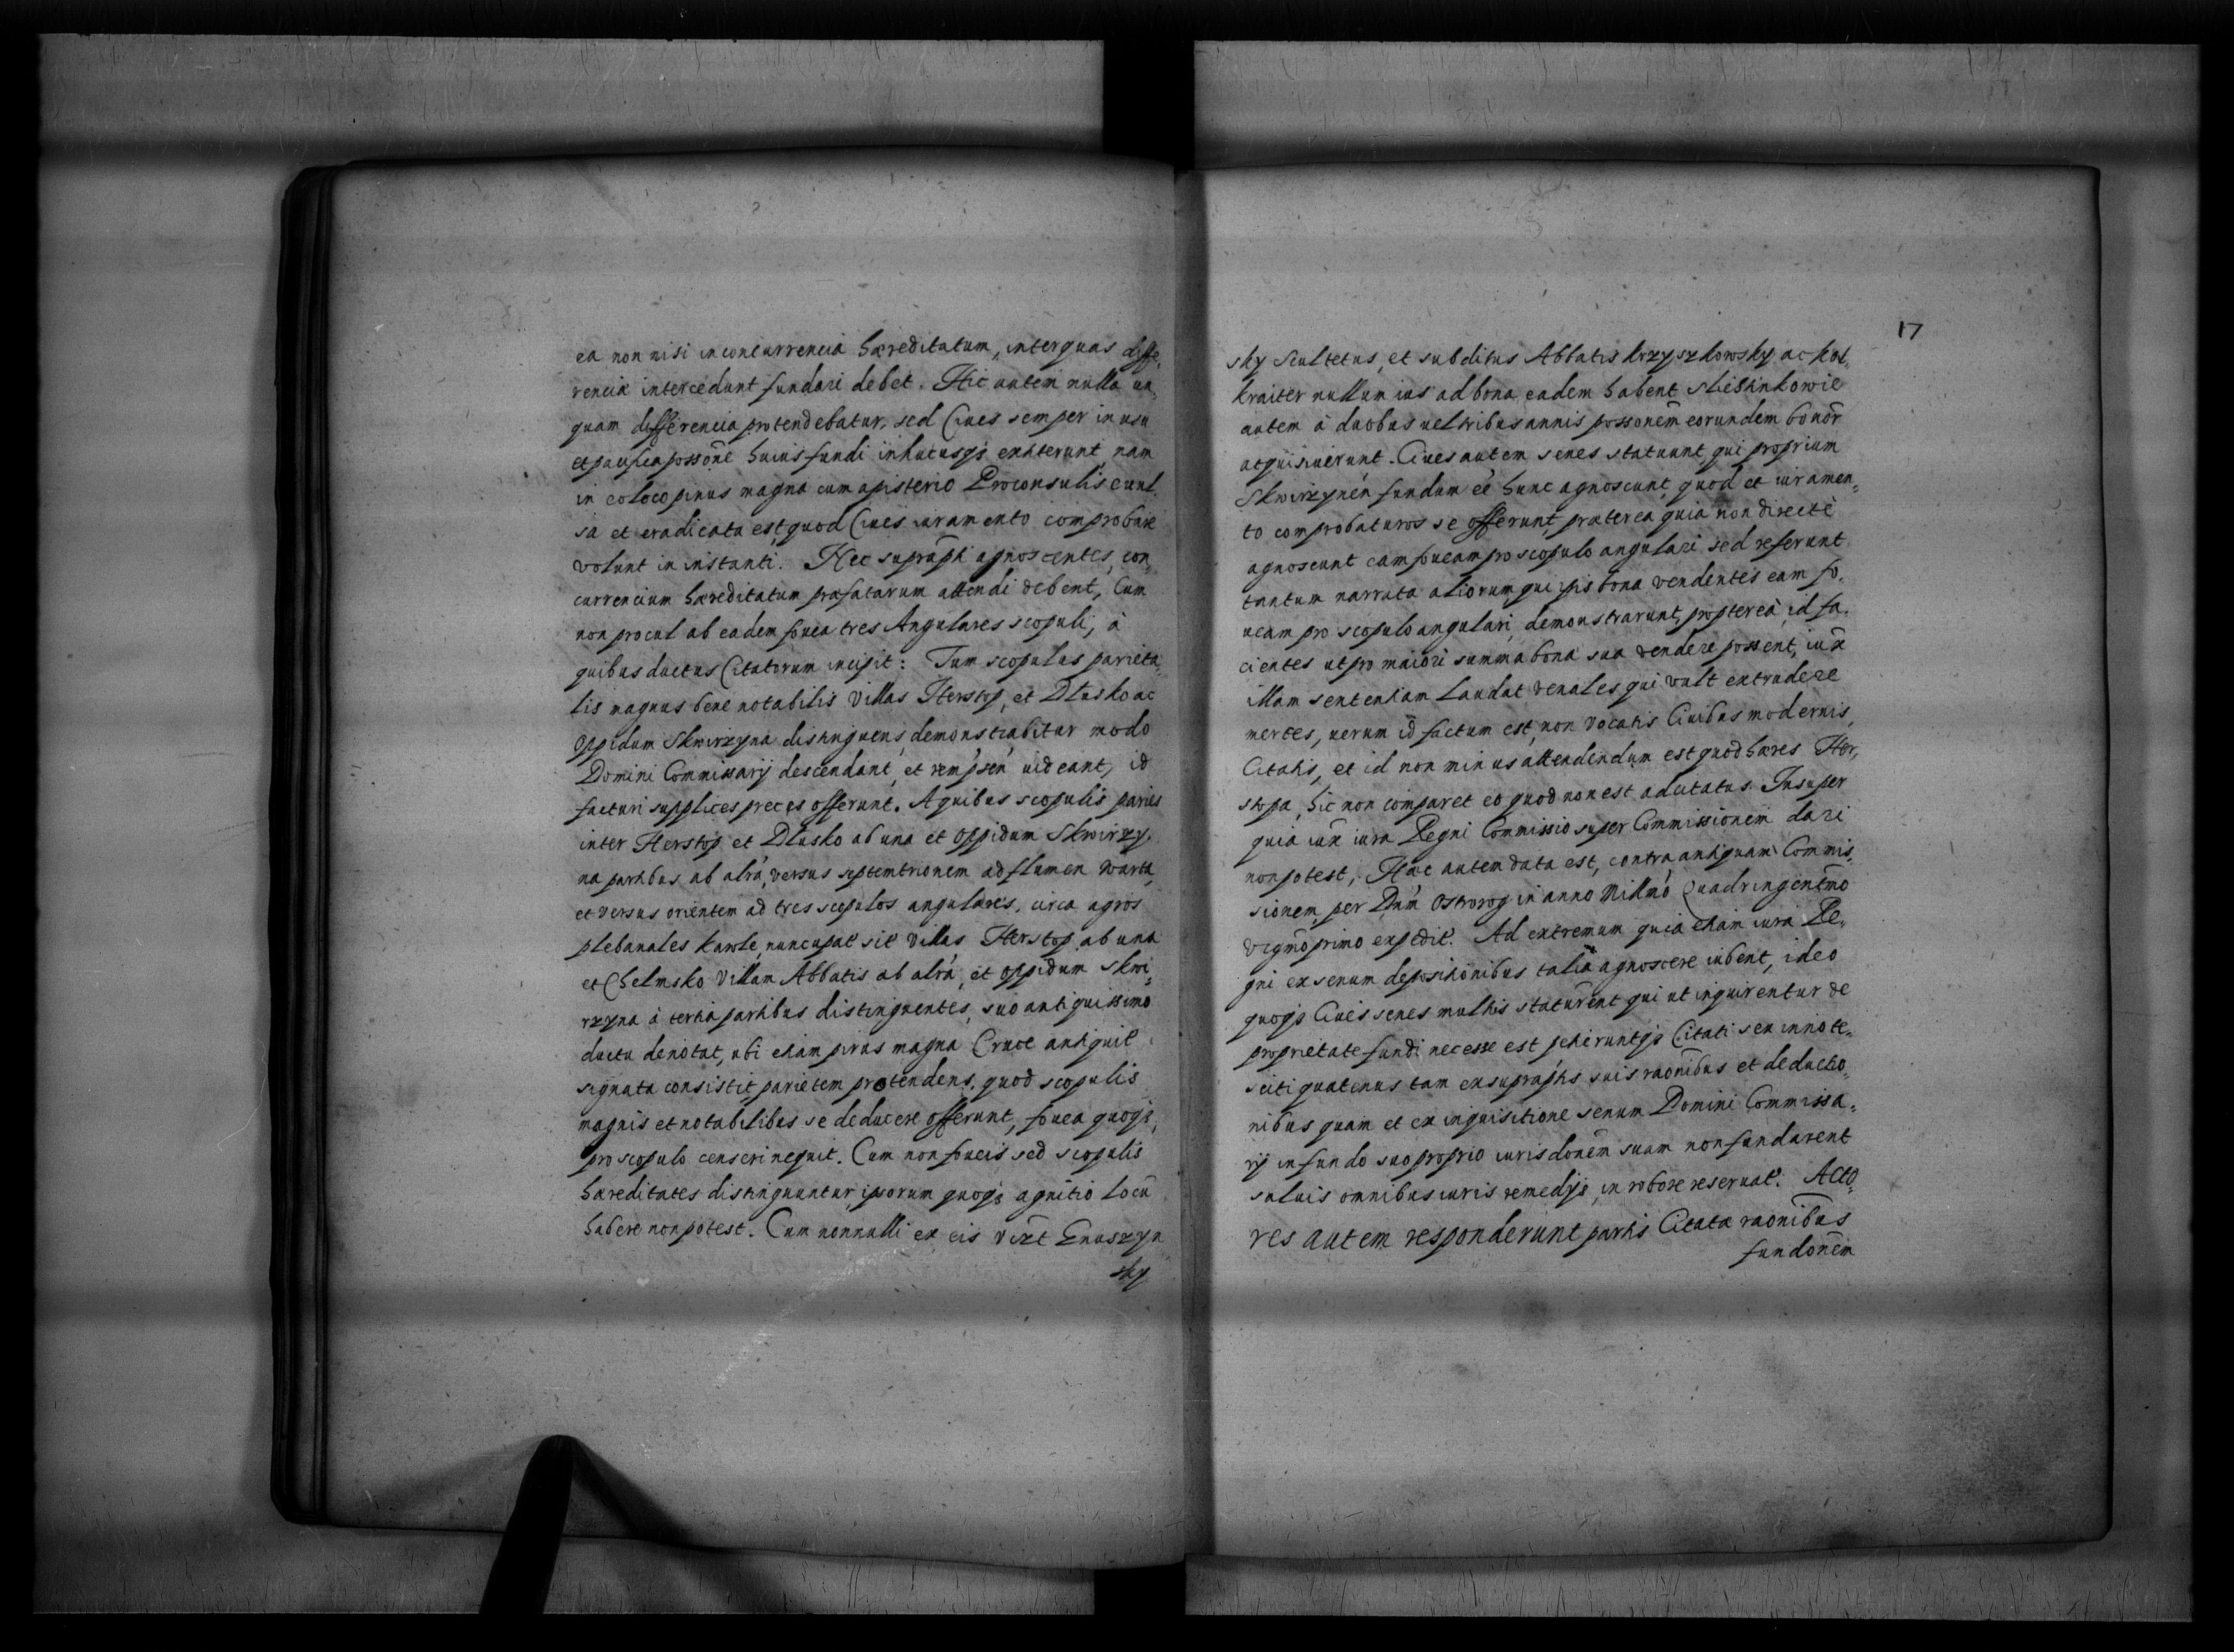 ea non nisi in concurrencia hæreditatum, inter quas diffe,
rencia intercedunt fundari debet. Hic autem nulla un,
quam differencia protendebatur, sed Ciues semper in usu
et pacifica possōne huius fundi in hucusqз extiterunt, nam
in eo loco pinus magna cum apisterio Proconsulis
sa et eradicata est, quod Ciues iuramento comprobare
volunt in instanti. Nec suprāpti agnoscentes, con,
currencium hæreditatum præfatarum attendi debent, Cum
non procul ab eadem fouea tres Angulares scopuli, à
quibus ductus Citatorum incipit: Tum scopulus parieta,
lis magnus bene notabilis villas Herstop, et Dlusko ac
Oppidum Skwirzyna distinguens, demonstrabitur modo
Domini Commissarij descendant, et rem psen uideant, id
facturi supplices preces offerunt. A quibus scopulis paries
inter Herstop et Dlusko ab una et Oppidum Skwirzy,
na partibus ab alrá, versus septemtrionem ad flumen Warta,
et versus orientem ad tres scopulos angulares, circa agros
plebanales kawle, nuncupat sit villas Herstop ab una
et Chelmsko villam Abbatis ab alrá, et Oppidum Skwi,
rzyna à tertia partibus distinguentes, suo antiquissimo
ductu denotat, ubi etiam pirus magna Cruce antiquit
signata consistit, parietem protendens, quod scopulis
magnis et notabilibus se deducere offerunt, fouea quoqз,
pro scopulo censeri nequit. Cum non foueis sed scopulis
hæreditates distinguuntur, ipsorum quoqз agnitio locū
habere non potest. Cum nonnulli ex eis vizt Gnuszyn
sky
17
sky Scultetus, et subditus Abbatis krzyszkowsky ac kol,
kraiter nullum ius ad bona eadem habent
autem à duobus uel tribus annis possonēm eorundem bonōr
acquisiuerunt. Ciues autem senes statuunt, qui proprium
Skwirzynēn fundum eē hunc agnoscunt, quod et iuramen,
to comprobaturos se offerunt, præterea quia non directè
agnoscunt eam foueam pro scopulo angulari sed referunt
tantum narrata aliorum, qui ipis bona vendentes eam fo,
ueam pro scopulo angulari, demonstrarunt, proptereà id fa,
cientes ut pro maiori summa bona sua vendere possent, iux̄
illam sententiam Laudat venales qui vult extrudere
mertes, uerum id factum est, non vocatis Ciuibus modernis,
Citatis, et id non minus attendendum est quod hæres Her,
stopa, hic non comparet eo quod non est adcitatus. Insuper
quia iux̄ iura Regni Commissio super Commissionem dari
non potest, Hæc autem data est, contra antiquam Commis,
sionem, per Dnm Ostrorog in anno Millmo Quadringentmo
vigmo primo expedit. Ad extremum quia etiam iura Re,
gni ex senum depositionibus talia agnoscere iubent, ideo
quoqз Ciues senes multis staturent qui ut inquirentur de
proprietate fundi necesse est, petieruntqз Citati seu innote,
sciti quatenus tam ex suprāptis suis raōnibus et deductio,
nibus quam et ex inquisitione senum Domini Commissa,
rij in fundo suo proprio iurisdonēm suam non fundarent
saluis omnibus iuris remedijs, in robore reseruat. Acto,
res autem responderunt partis Citatæ raonībus
fundonēm